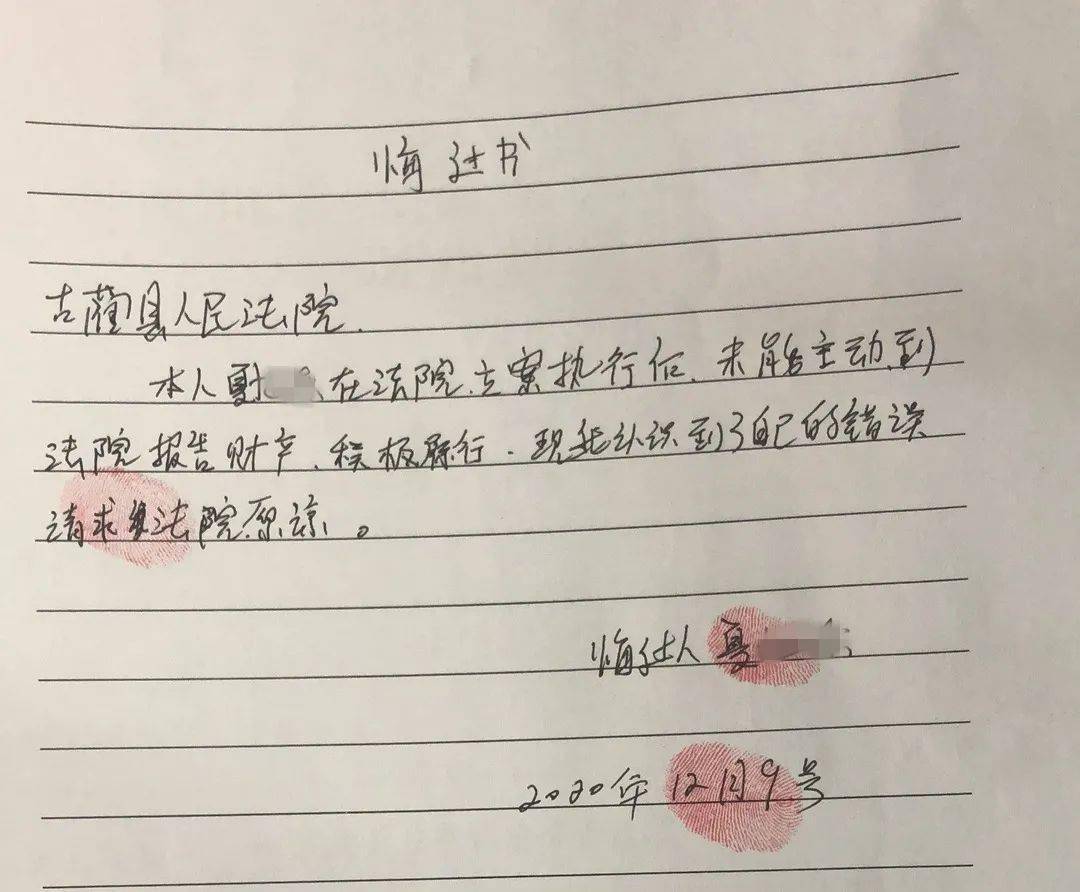 悔过书
古蔺县人民法院.
本人夏在法院立案执行后、未能主动到
法院报告财产、积极履行.现我认识到了自己的错误
请求法院原谅。
悔过人夏
2020年12月9号